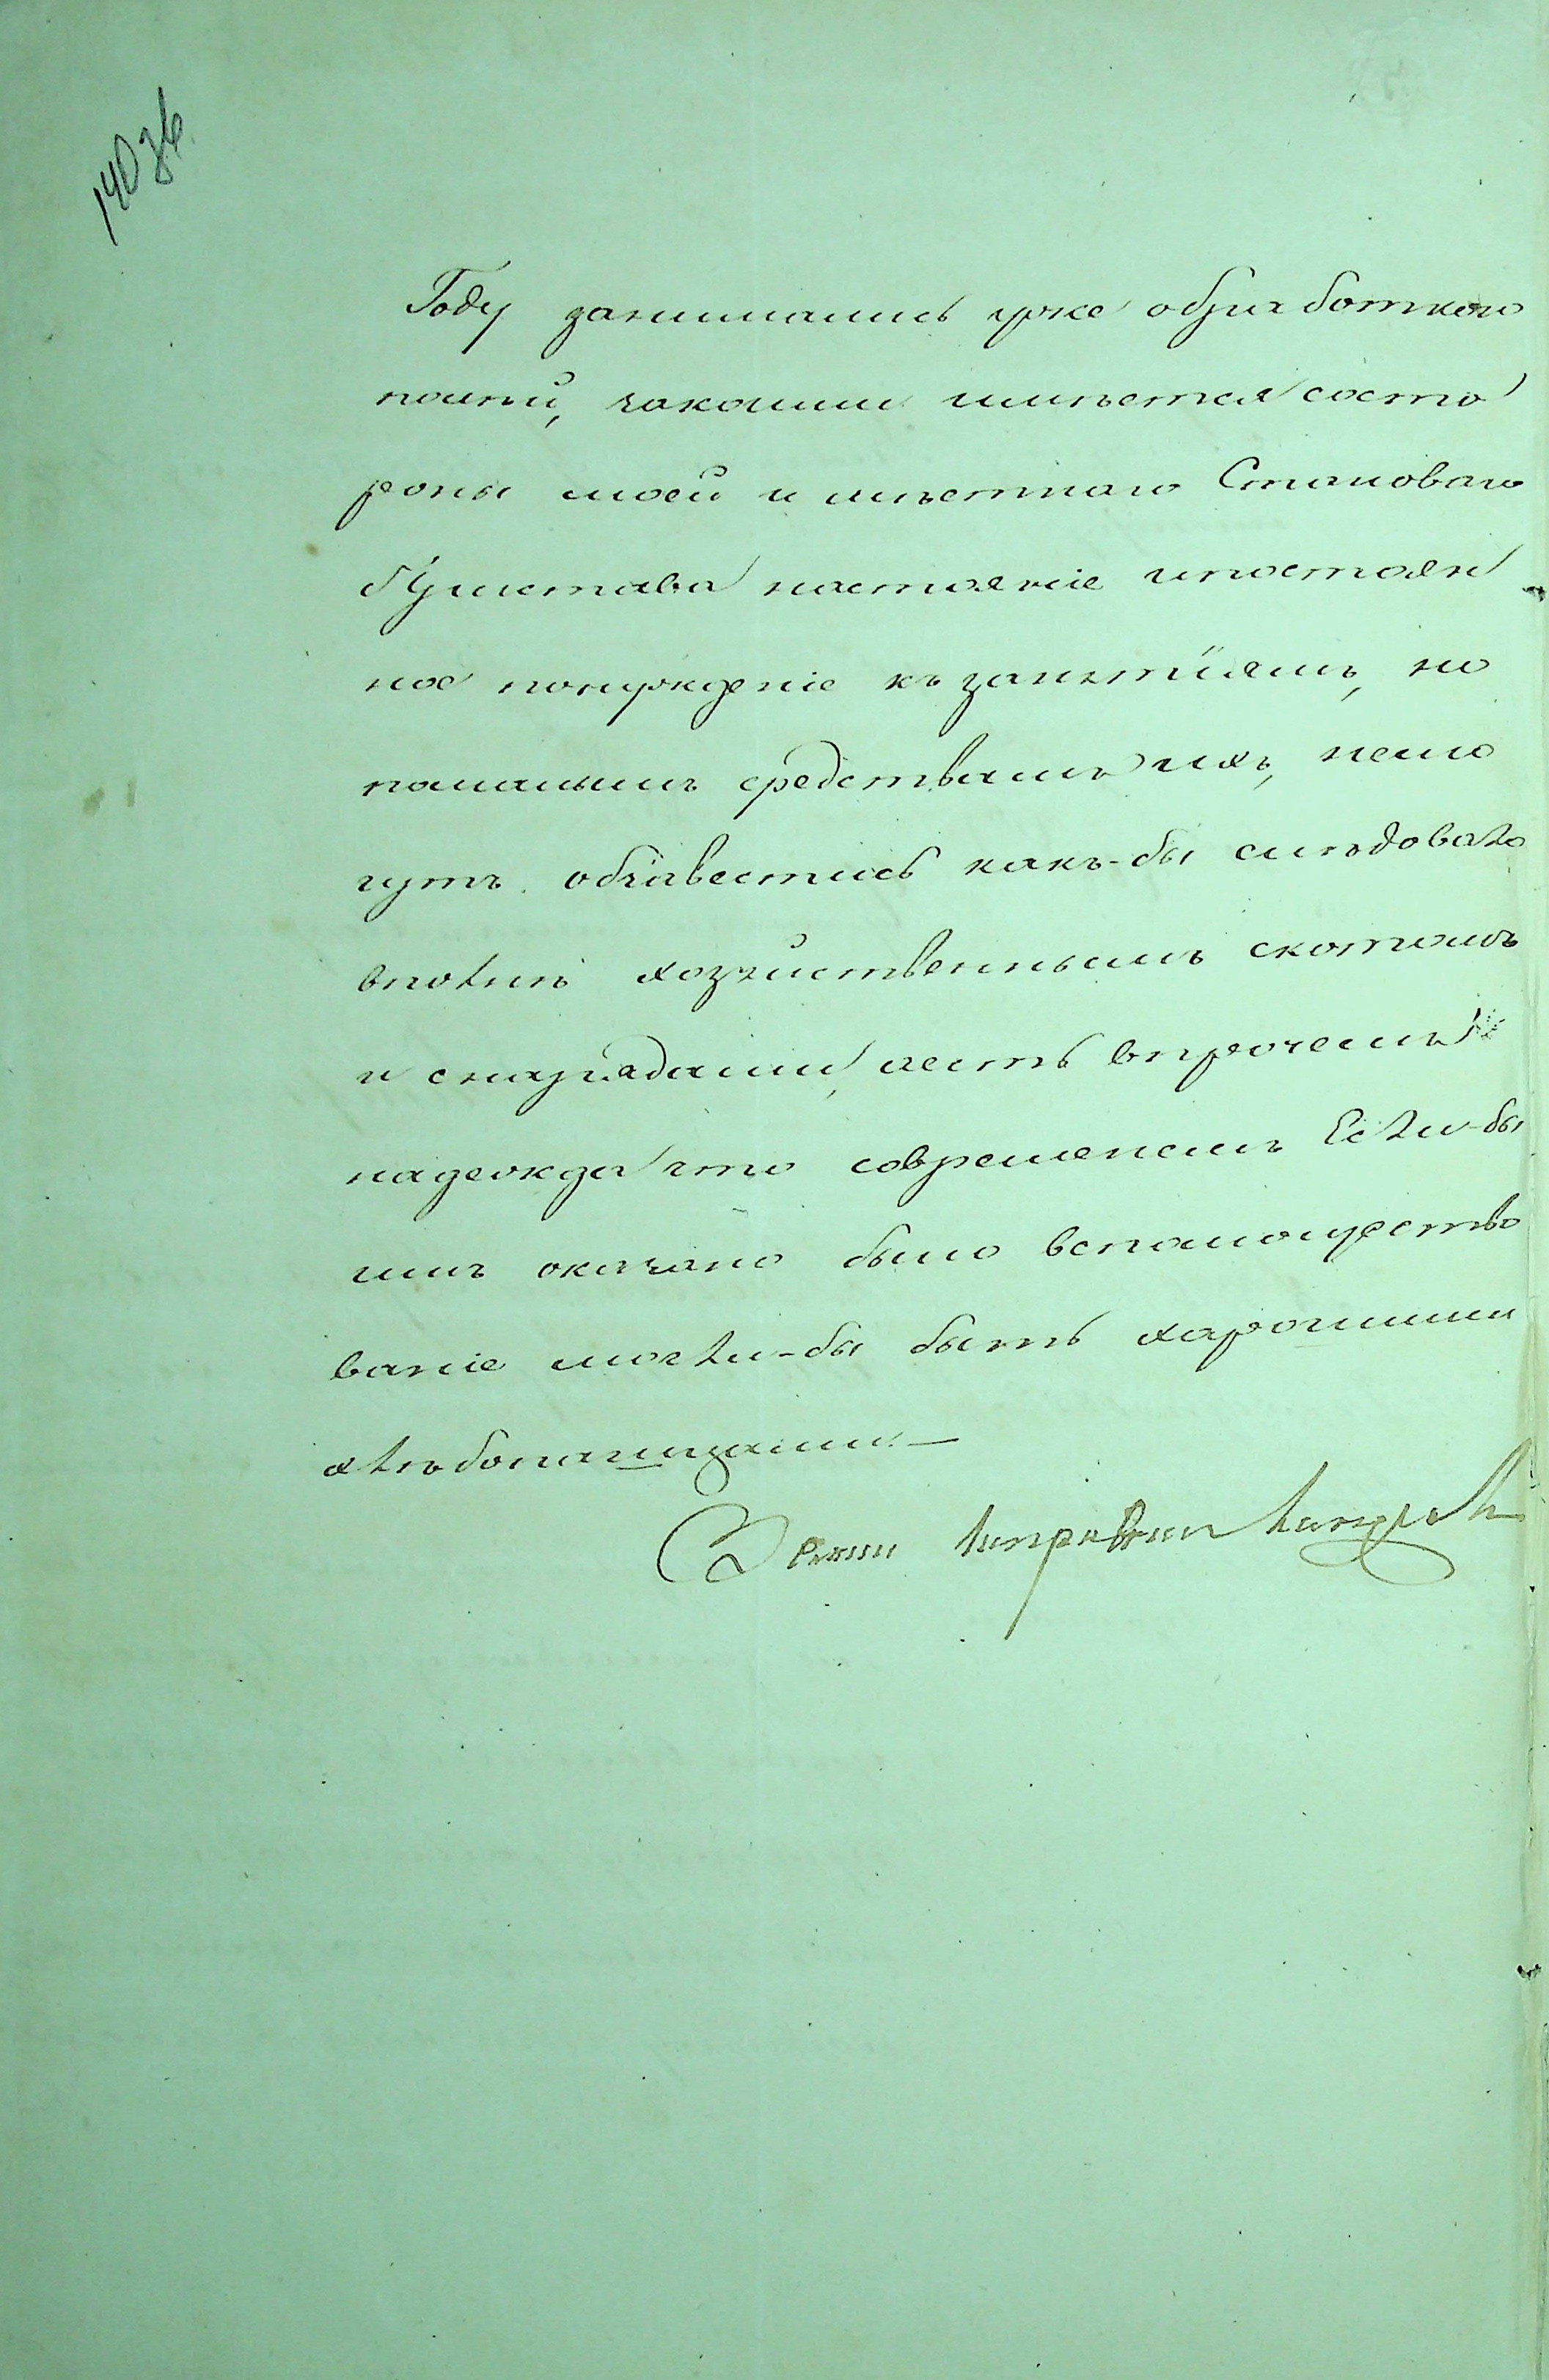 140 об
Году занимались уже обработкою
полѣй, закоими имѣется состо
роны моей и мѣстнаго Становаго
Пристава настояніе ипостоян
ное понужденіе къ занятіямъ, но
помалымъ средствамъ ихъ, немо
гутъ обзавестись какъ-бы слѣдовало
вполнѣ хозяйственнымъ скотомъ
и снарядами, лесть впрочемъ
надежда что современемъ Если-бы
имъ оказано было вспомоществo
ваніе могли-бы быть харошими
хлѣбопашцами.—